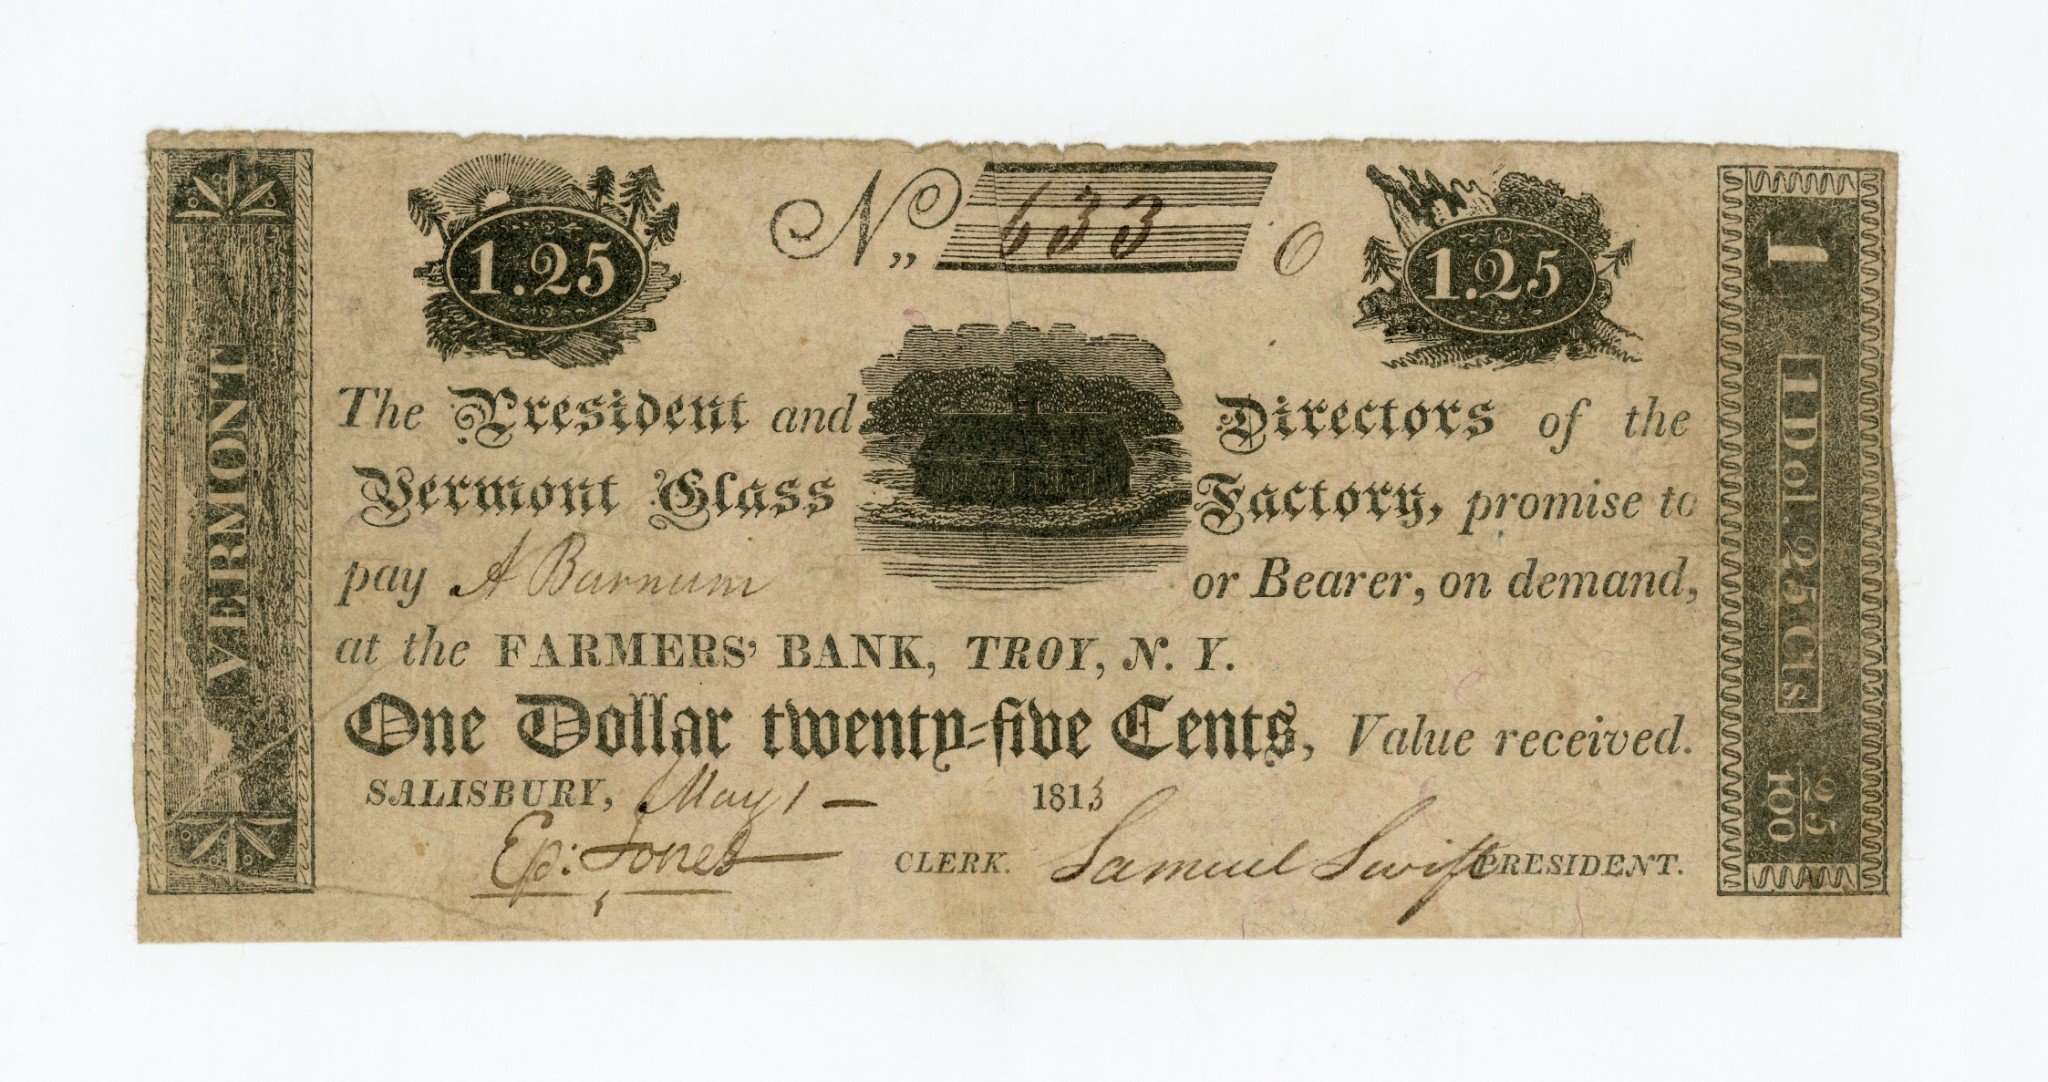 1.25 No,, 633 O 1.25
The President and Directors of the
Vermont Glass Factory, promise to
pay A Barnum or Bearer, on demand,
at the FARMERS' BANK, TROY, N. Y.
One Dollar twenty-five Cents, Value received.
SALISBURY, May 1 — 1813
Ep: Jones CLERK. Samuel Swift PRESIDENT.
VERMONT
1 1 Dol. 25 Cts 25/100